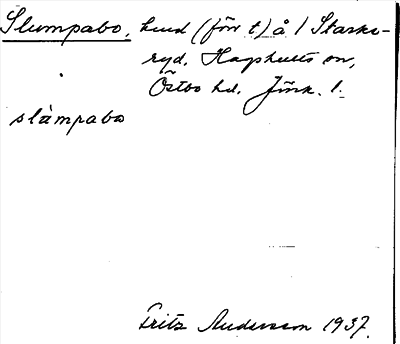 Slumpabo, hmd (förr t) å 1 Starke-
ryd. Hagshults sn,
Östbo hd. Jönk. l.
slàmpabo
Fritz Andersson 1937.